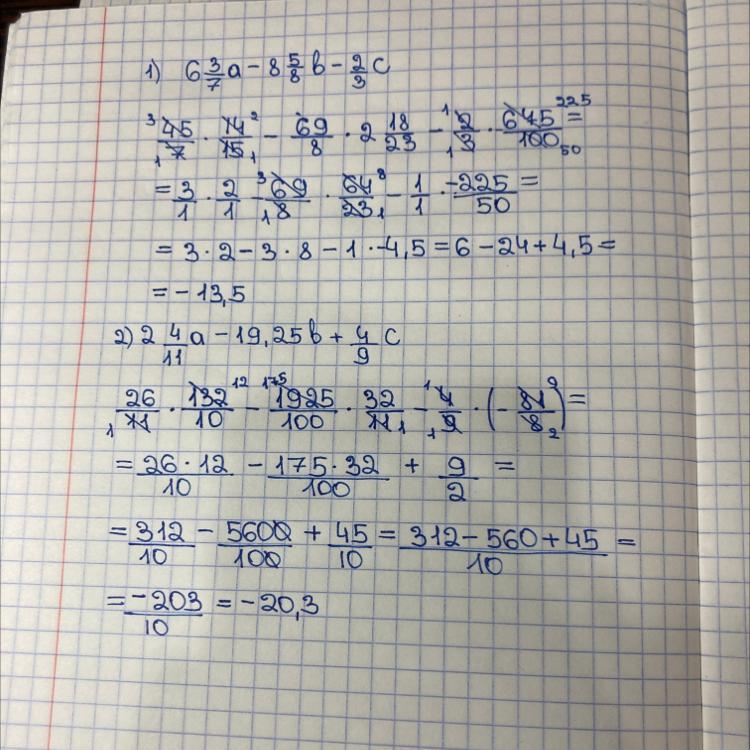 1) 6 3/7 a - 8 5/8 b - 2/3 c
³45/₁7 · 14²/15₁ - 69/8 · 2 18/23 - ¹2/₁3 · 645²²⁵/100₅₀ =
= 3/1 · 2/1 - ³69/₁8 · 64⁸/23₁ - 1/1 · -225/50 =
= 3 · 2 - 3 · 8 - 1 · -4,5 = 6 - 24 + 4,5 =
= - 13,5
2) 2 4/11 a - 19,25 b + 4/9 c
26/₁11 · 132¹²/10 - ¹⁷⁵1925/100 · 32/11₁ - ¹4/₁9 · (- 81⁹/8₂) =
= 26 · 12/10 - 175 · 32/100 + 9/2 =
= 312/10 - 5600/100 + 45/10 = 312 - 560 + 45/10 =
= -203/10 = - 20,3